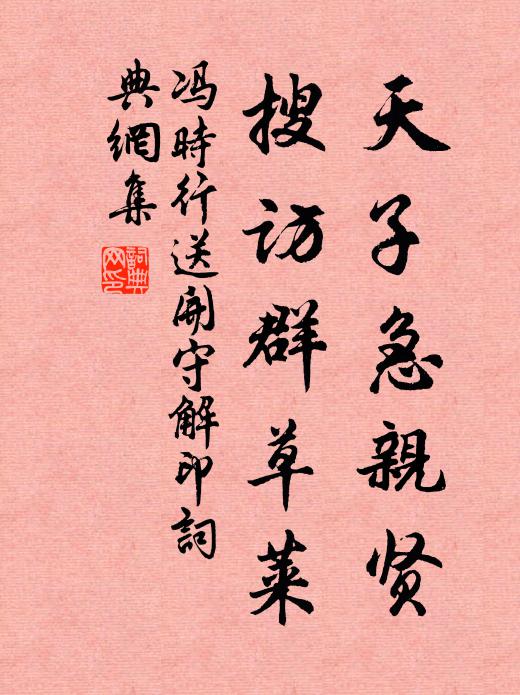 天子急親贤
搜访群草莱
冯時行送開守解印詞
典網集
詞典
网印